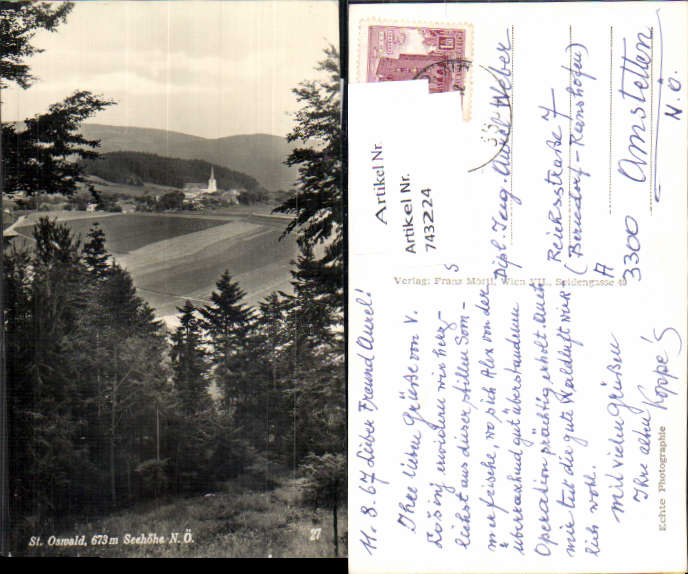 St. Oswald, 673 m Seehöhe N. Ö.
27
Artikel Nr.
Artikel Nr.
743224
Verlag: Franz Mörtl, Wien VII., Seidengasse
Echte Photographie
11. 8. 67 Lieber Freund Aurel!
Ihre lieben Grüße von V.
erwidern wir herz-
lichst aus dieser stillen Som-
merfrische, wo sich Alex von der
überraschend gut überstandenen
Operation prächtig erholt. Auch
mir tut die gute Waldluft wirk-
lich wohl.
Mit vielen Grüßen
Ihre alten Koppe's
Dipl. Ing. Aurel Weber
Reichsstraße 7
(Berndorf-Ranshofen)
A
3300 Amstetten
N.Ö.